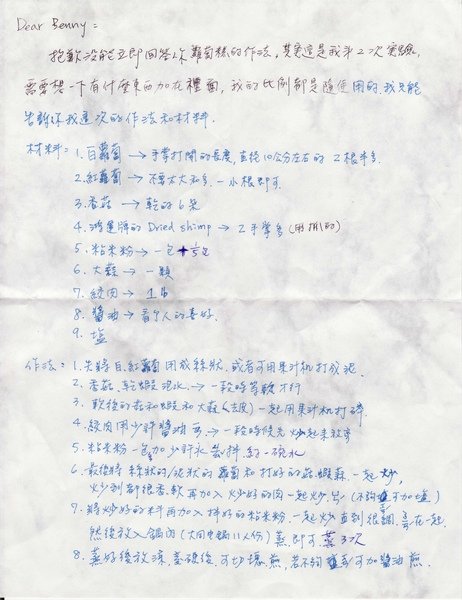 Dear Benny:
抱歉沒能立即回答你蘿蔔糕的作法,其實這是我第2次實驗,
需要想一下有什麼東西加在裡面,我的比例都是隨便用的,我只能
告訴你我這次的作法和材料.
材料: 1. 白蘿蔔 → 手掌打開的長度,直徑10公分左右的 2根半多.
2. 紅蘿蔔 → 不要太大和多. 一小根即可.
3. 香菇 → 乾的6朵
4. 鴻運牌的 Dried shimp → 2手掌多 (用抓的)
5. 粘米粉 → 一包
6. 大蒜 → 一顆
7. 絞肉 → 1 lb
8. 醬油 → 看個人的喜好.
9. 塩
作法: 1. 先將白.紅蘿蔔用成絲狀,或者可用果汁机打成泥.
2. 香菇.乾蝦泡水 → 一段時等軟才行
3. 軟後的菇和蝦和大蒜(去皮)一起用果汁机打碎.
4. 絞肉用少許醬油 → 一段時候先炒起來放旁
5. 粘米粉一包加少許水 拌 約一碗水
6. 最後將絲狀的/泥狀的蘿蔔和打好的菇.蝦.蒜.一起炒,
炒到都很香.軟再加入炒好的肉一起炒 (不夠塩可加塩)
7. 將炒好的料再加入拌好的粘米粉.一起炒直到很稠.在一起.
然後放入鍋內(大同电鍋11人份)蒸即可蒸3次
8. 蒸好後放涼,後.可切塊煎,若不夠可加醬油煎.